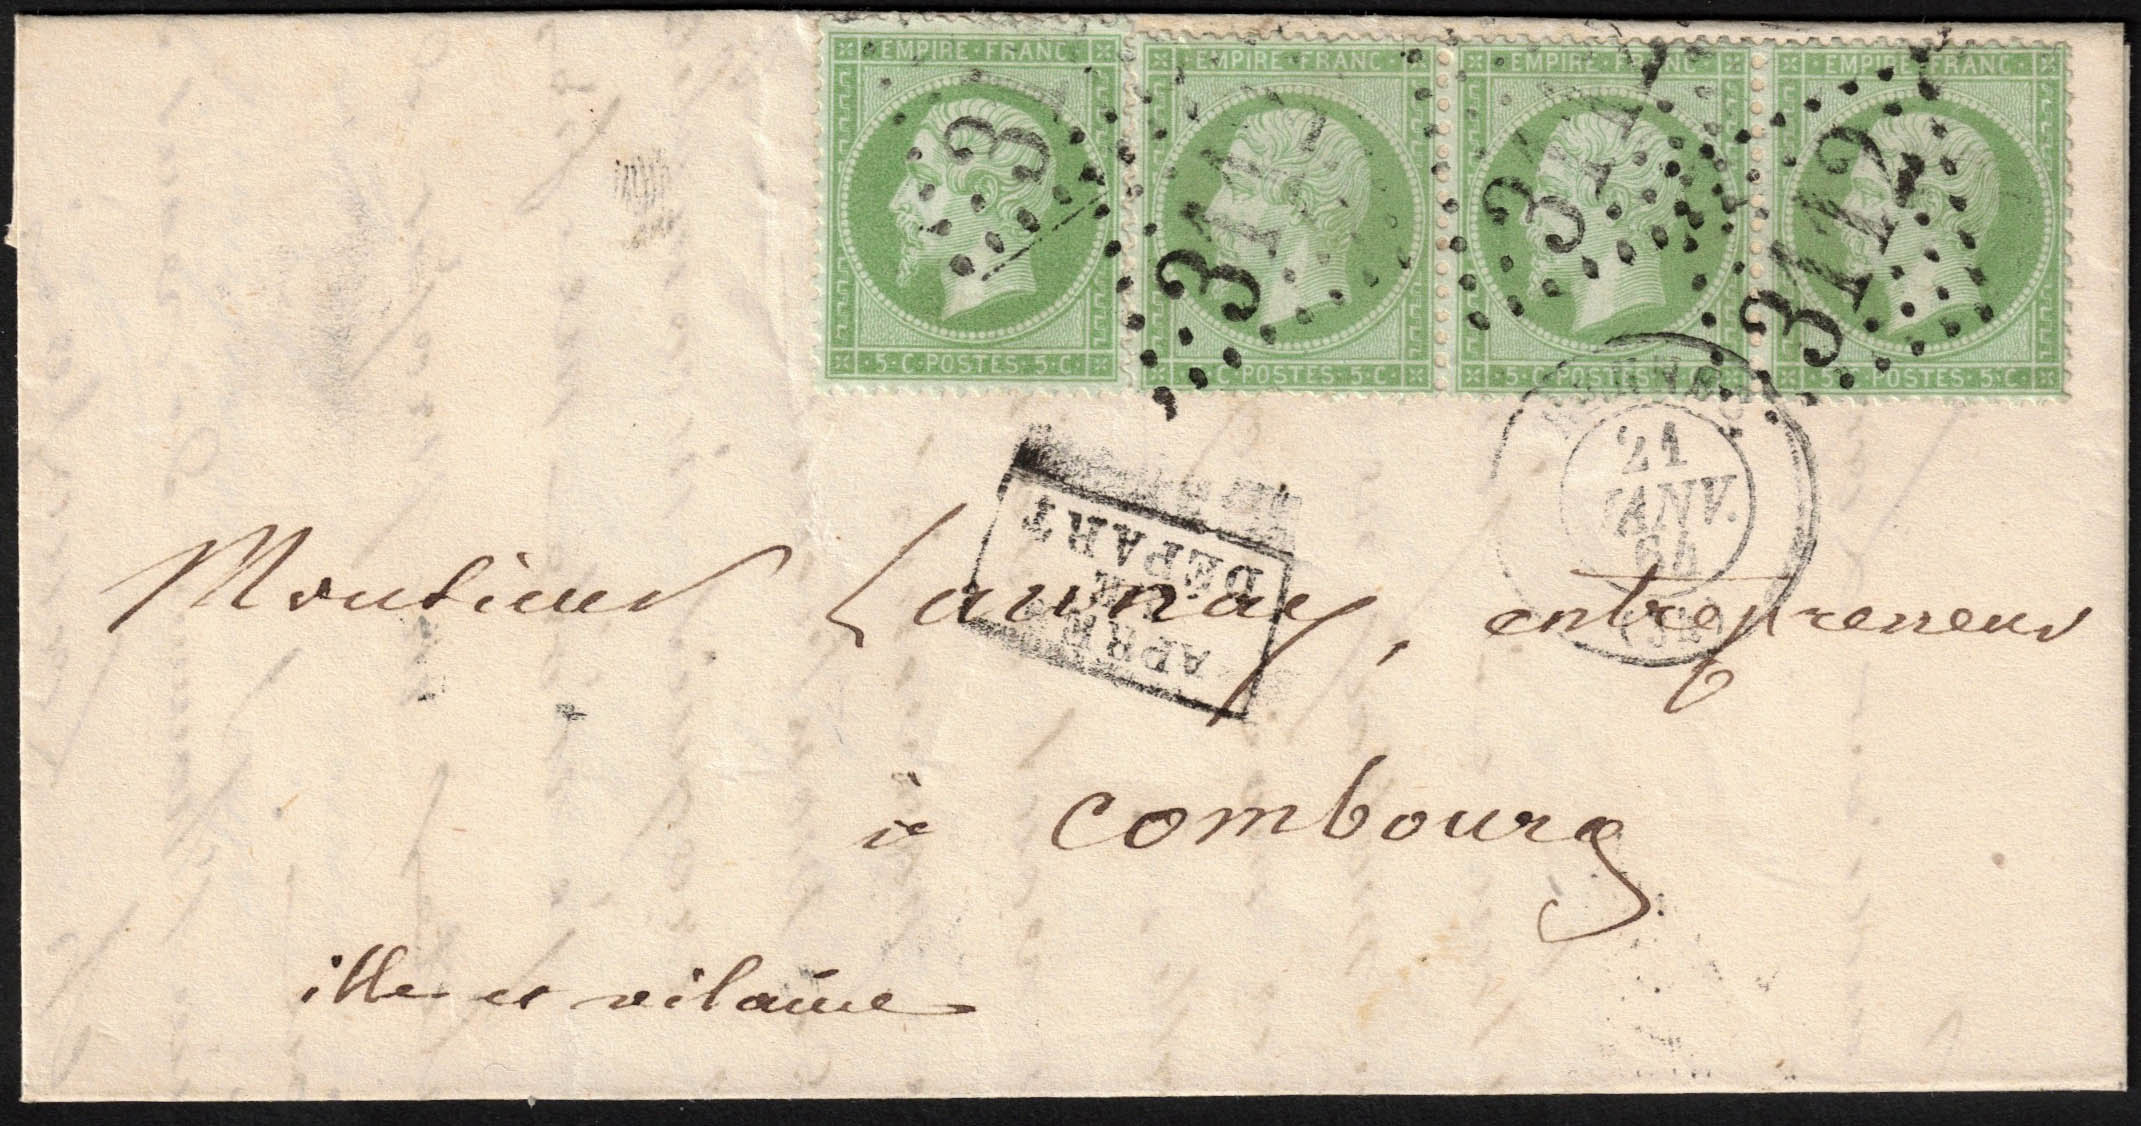 EMPIRE·FRANC·
EMPIRE·FRANC·
EMPIRE·FRANC·
EMPIRE·FRANC·
31
311
311
3112
·5·C·POSTES·5·C·
C·POSTES·5·C·
·5·C·POSTES·5·C·
5·C·POSTES·5·C·
21
JANV.
64
(34)
APRÈS LE
DÉPART
Monsieur Launay, entrepreneur
à combourg
ille et vilaine